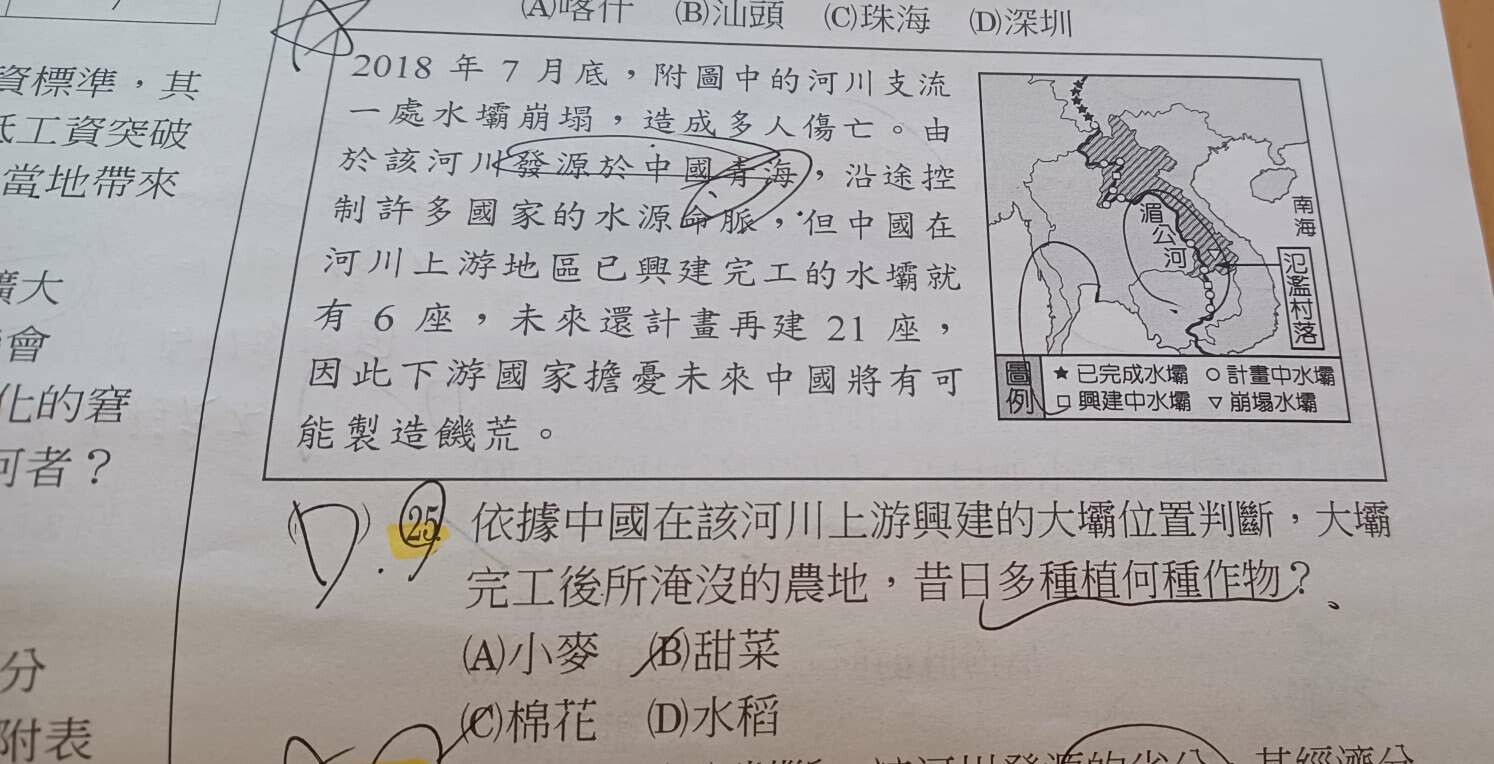 (A)喀什 (B)汕頭 (C)珠海 (D)深圳
資標準，其
工資突破
當地帶來
擴大
會
化的窘
何者？
分
附表
2018 年 7 月底，附圖中的河川支流
一處水壩崩塌，造成多人傷亡。由
於該河川發源於中國青海，沿途控
制許多國家的水源命脈，但中國在
河川上游地區已興建完工的水壩就
有 6 座，未來還計畫再建 21 座，
因此下游國家擔憂未來中國將有可
能製造饑荒。
南海
湄公河
氾濫村落
圖例
★已完成水壩 ○計畫中水壩
□興建中水壩 ▽崩塌水壩
(D) 25. 依據中國在該河川上游興建的大壩位置判斷，大壩
完工後所淹沒的農地，昔日多種植何種作物？
(A)小麥 (B)甜菜
(C)棉花 (D)水稻